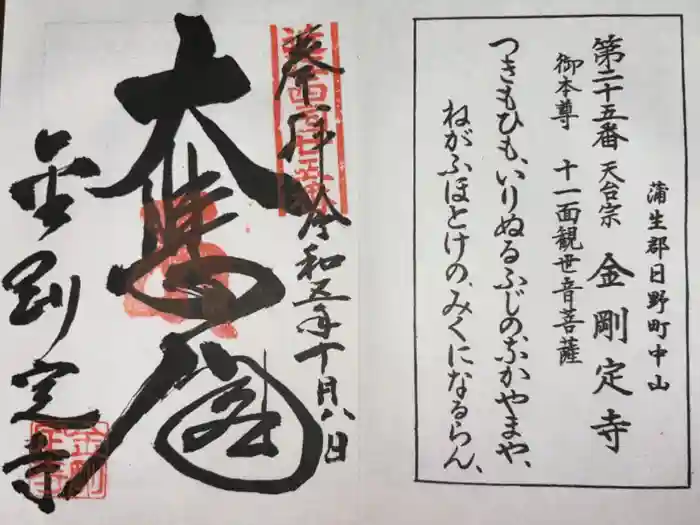 蒲生郡日野町中山
第二十五番 天台宗 金剛定寺
御本尊 十一面観世音菩薩
つきもひも、いりぬるふじの、なかやまや、
ねがふほとけの、みくになるらん、
奉拝 令和五年十月八日
大悲閣
金剛定寺
金剛
定寺